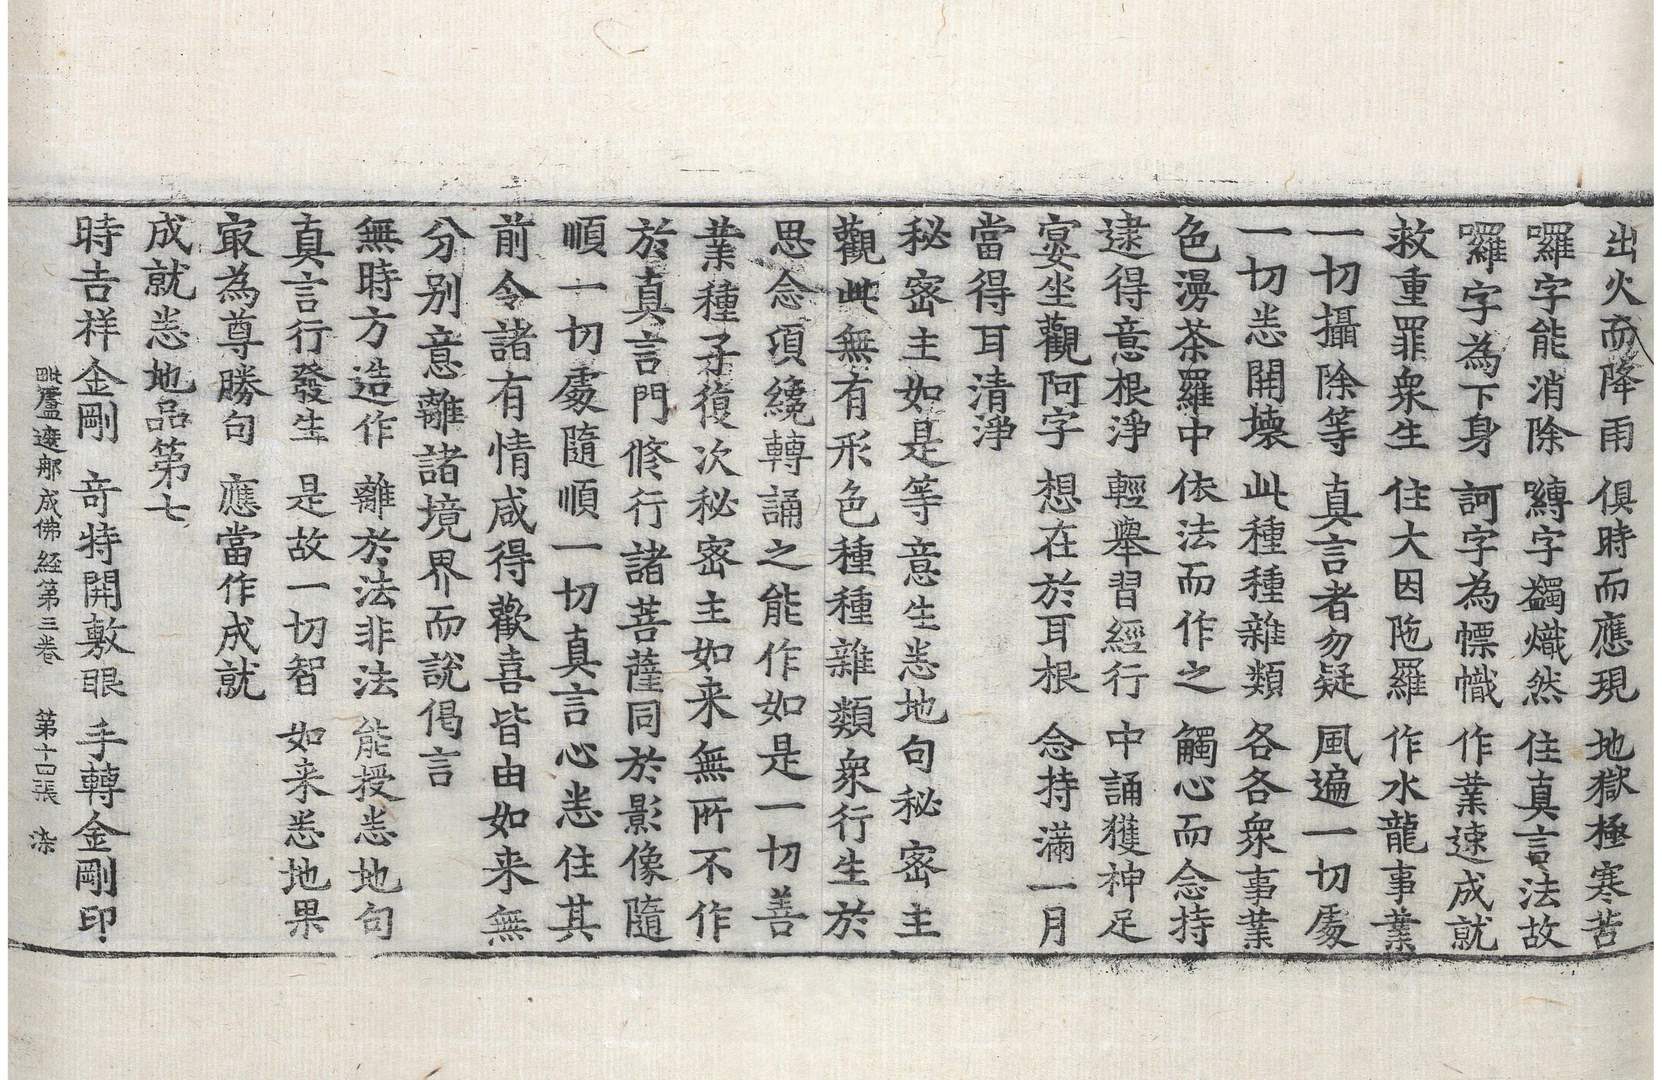 出火而降雨　俱時而應現　地獄極寒苦
囉字能消除　嚩字蠲熾然　住真言法故
囉字為下身　訶字為慓幟　作業速成就
救重罪衆生　住大因陁羅　作水龍事業
一切攝除等　真言者勿疑　風遍一切處
一切悉開壞　此種種雜類　各各衆事業
色漫茶羅中　依法而作之　觸心而念持
逮得意根淨　輕舉習經行　中誦獲神足
宴坐觀阿字　想在於耳根　念持滿一月
當得耳清淨
秘密主如是等意生悉地句秘密主
觀此無有形色種種雜類衆行生於
思念須纔轉誦之能作如是一切善
業種子復次秘密主如来無所不作
於真言門修行諸菩薩同於影像隨
順一切處隨順一切真言心悉住其
前令諸有情咸得歡喜皆由如来無
分别意離諸境界而說偈言
無時方造作　離於法非法　能授悉地句
真言行發生　是故一切智　如来悉地果
㝡為尊勝句　應當作成就
成就悉地品第七
時吉祥金剛　竒特開敷眼　手轉金剛印
毗盧遮那成佛經第三卷　第十四張　染